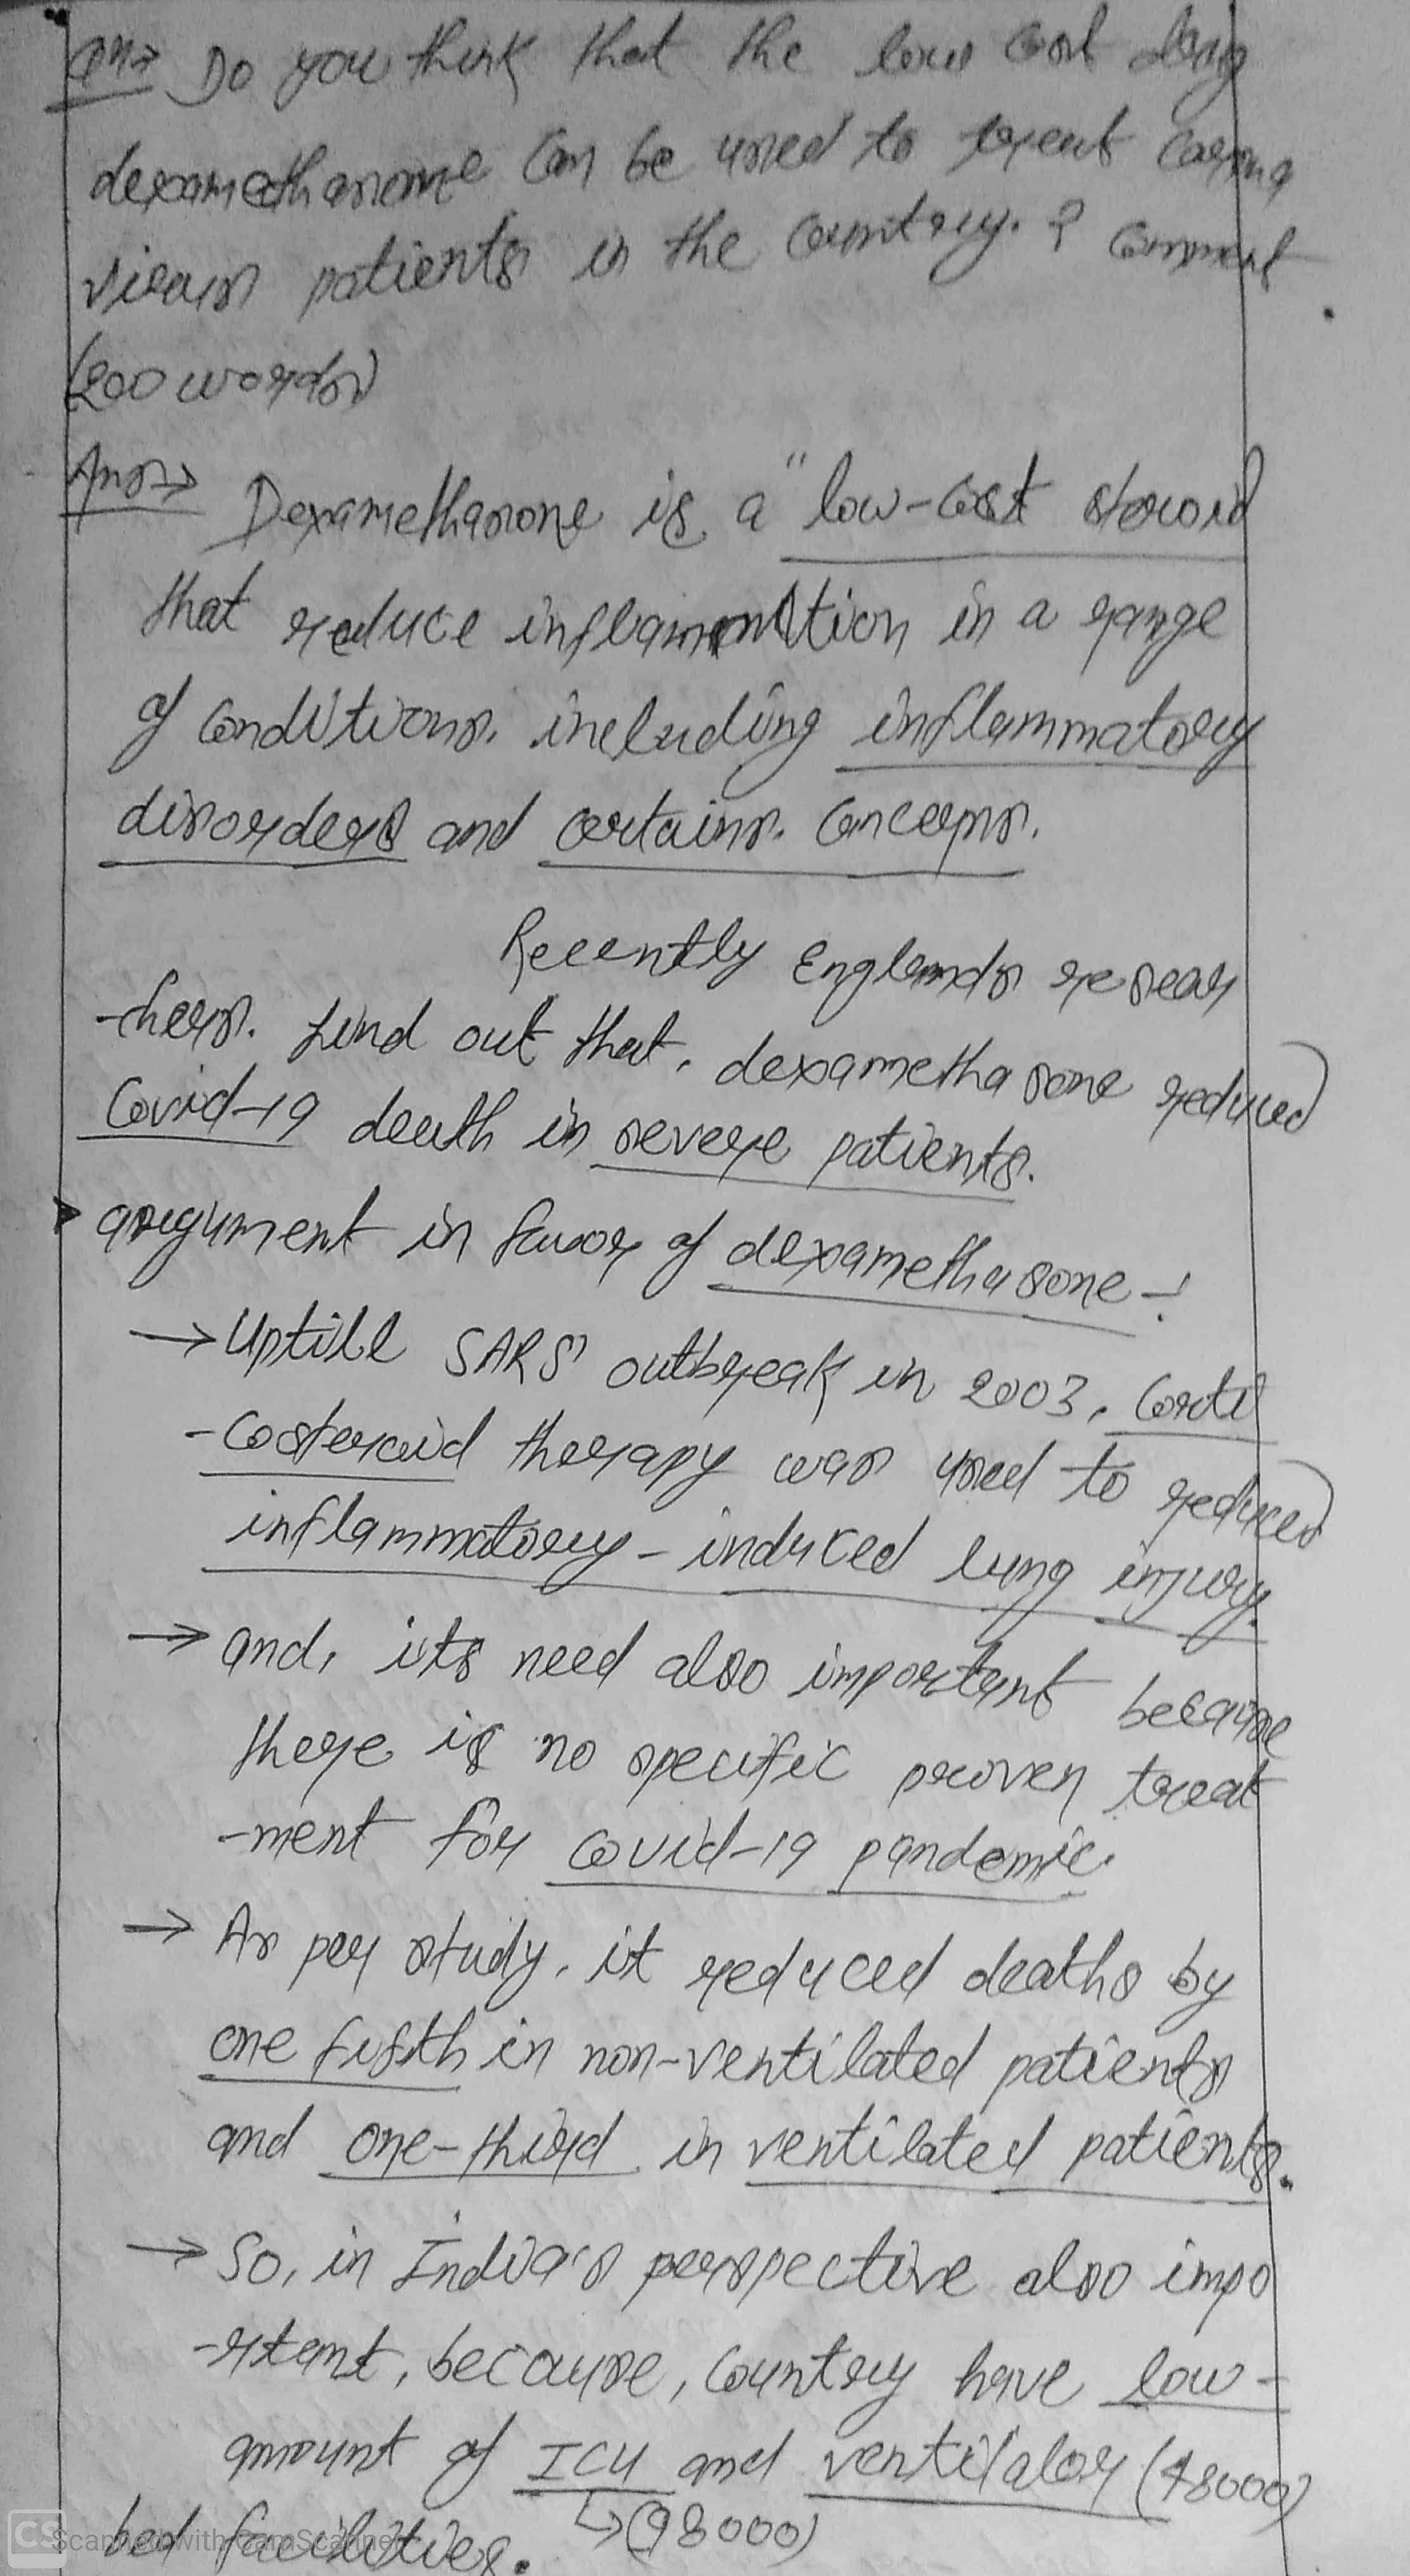 Qn→ Do you think that the low cost drug
dexamethasone can be used to treat corona
virus patients in the country. ? Comment
(200 words)
Ans→ Dexamethasone is a "low-cost steroid
that reduce inflammation in a range
of conditions. including inflammatory
disorders and certains. cancers.
Recently Englands resear
-chers. find out that, dexamethasone reduced
Covid-19 death in severe patients.
argument in favor of dexamethasone -!
→ Uptill SARS outbreak in 2003, Corti
-costeroid therapy was used to reduced
inflammatory-induced lung injury.
→ and, its need also important because
there is no specific proven treat
-ment for covid-19 pandemic.
→ As per study, it reduced deaths by
one fifth in non-ventilated patients
and one-third in ventilated patients.
→ So, in India's perspective also impo
-rtant, because, country have low-
amount of ICU and ventilator (48000)
↳(98000)
bed facilities.
CS Scanned with CamScanner